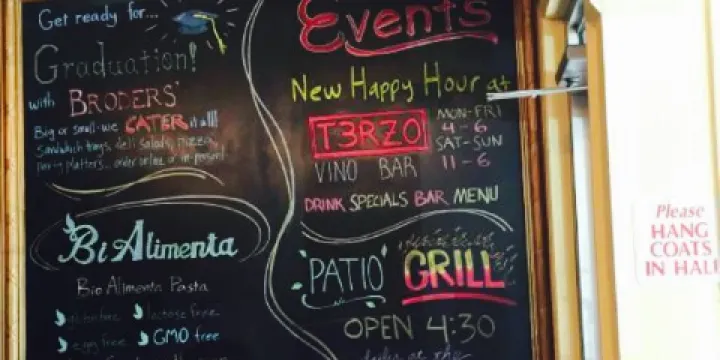 Get ready for...
Graduation!
with BRODERS'
Big or small-we CATER it all!
Sandwich trays, deli salads, pizzas,
party platters... order online or in person!
BiAlimenta
Bio Alimenta Pasta
gluten free lactose free
egg free GMO free
Events
New Happy Hour at
T3RZO
VINO BAR
MON-FRI
4-6
SAT-SUN
11-6
DRINK SPECIALS BAR MENU
PATIO GRILL
OPEN 4:30
at the
Please
HANG
COATS
IN HALL